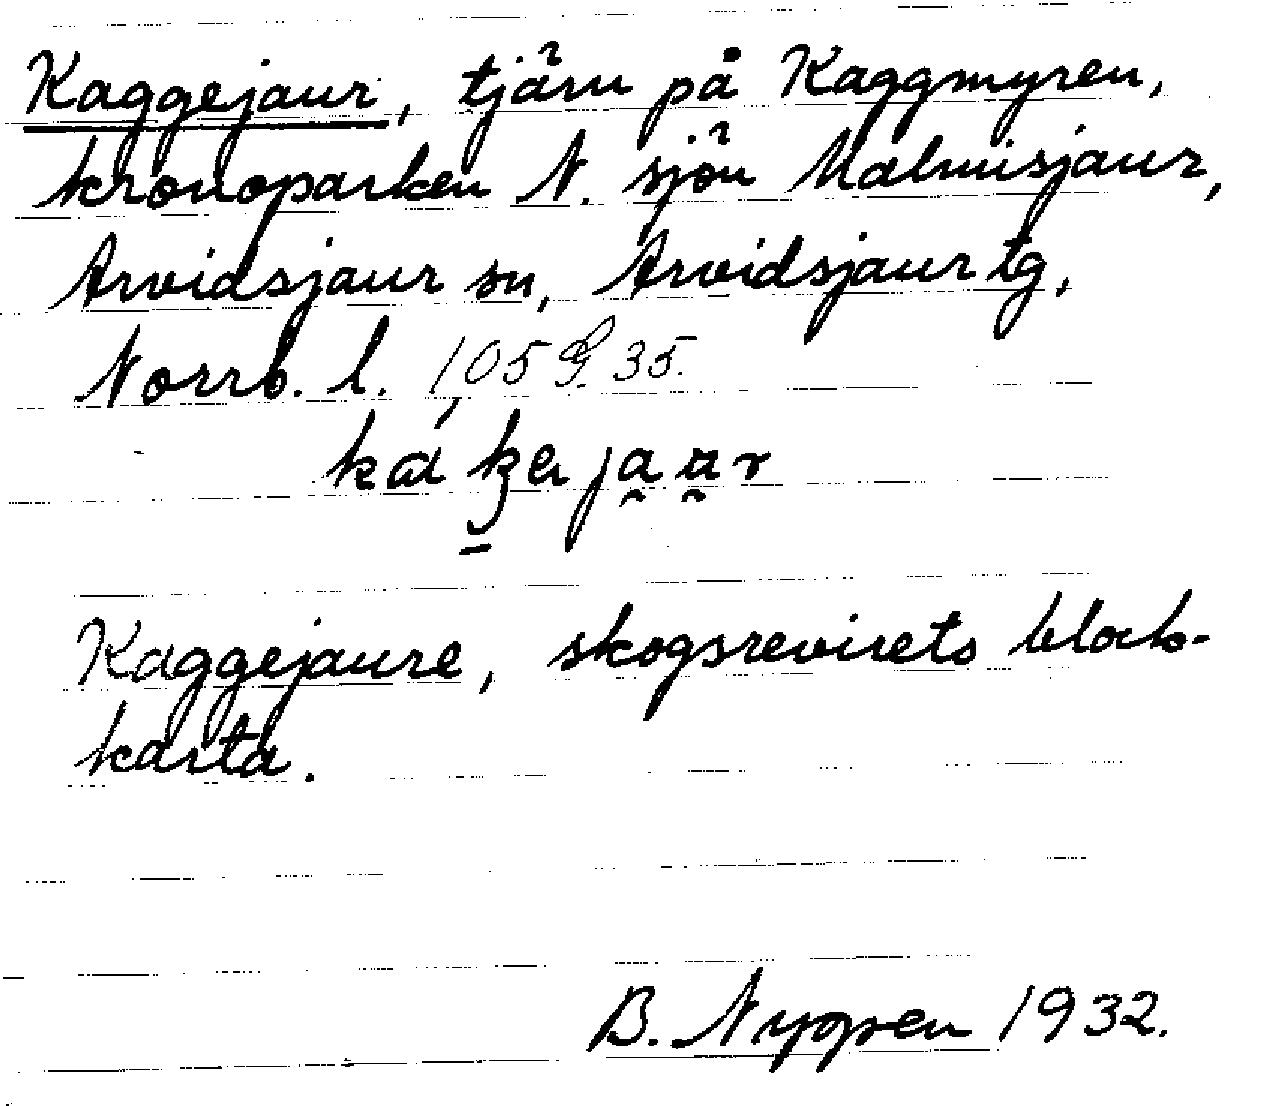 Kaggejaur, tjärn på Kaggmyren,
kronoparken N. sjön Malmisjaur,
Arvidsjaur sn, Arvidsjaur tg,
Norrb. l.
Kaggejaure, skogsrevirets block-
karta.
B. Nyppen 1932.